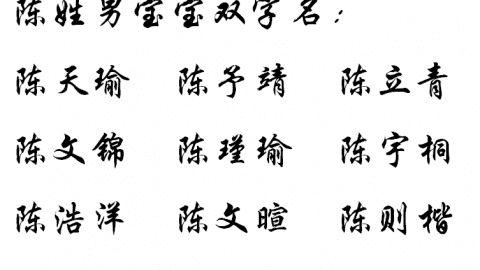 陈姓男宝宝双字名：
陈天瑜 陈予靖 陈立青
陈文锦 陈瑾瑜 陈宇桐
陈浩洋 陈文暄 陈则楷